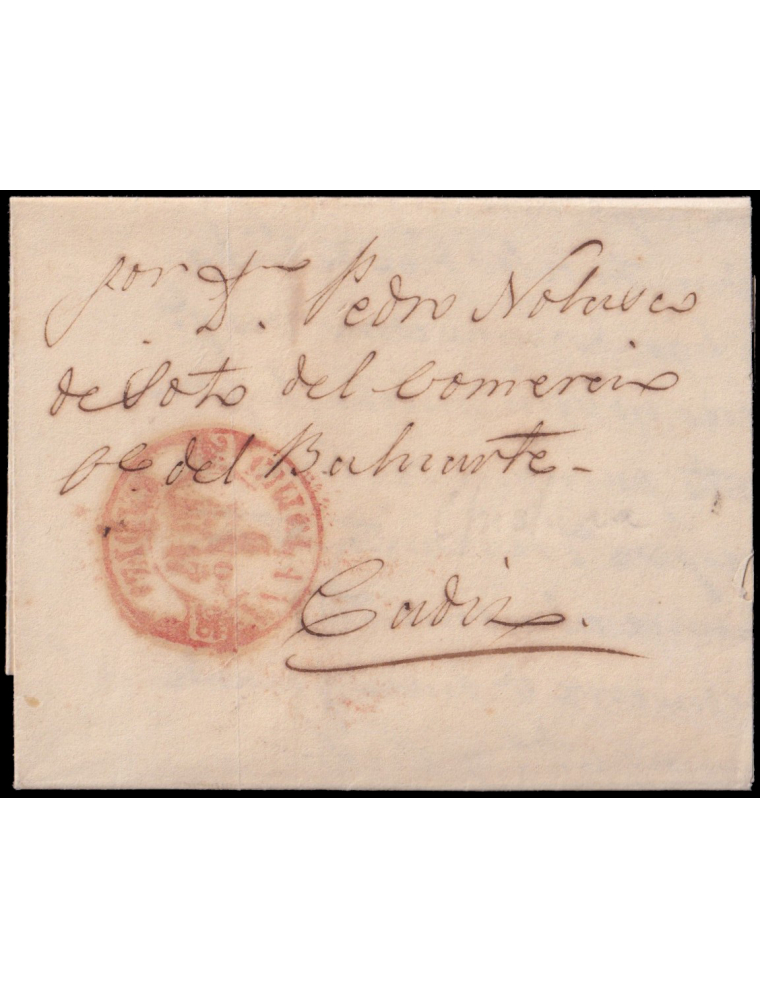 Sor Dn
D. Pedro Nolasco
de Soto del Comercio
pe del Baluarte -
Cadiz.